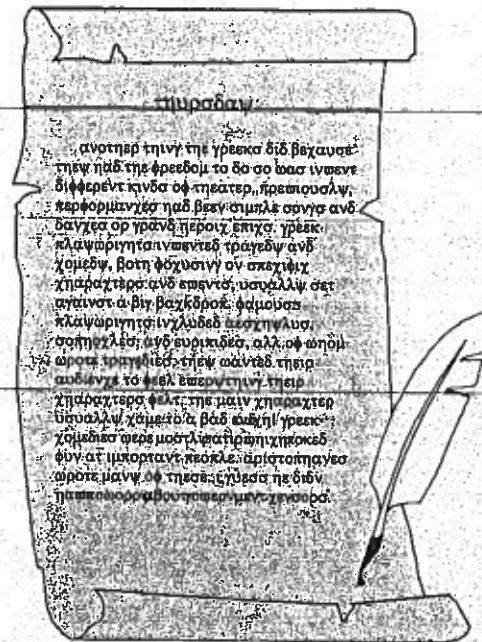 τηυρσδαψ
ανοτηερ τηινγ τηε γρεεκσ διδ βεχαυσε
τηεψ ηαδ τηε φρεεδομ το δο σο ωασ ινϖεντ
διφφερεντ κινδσ οφ τηεατερ. πρεϖιουσλψ,
περφορμανχεσ ηαδ βεεν σιμπλε σονγσ ανδ
δανχεσ ορ γρανδ ηεροιχ επιχσ. γρεεκ
πλαψωριγητσ ινϖεντεδ τραγεδψ ανδ
χομεδψ, βοτη φοχυσινγ ον σπεχιφιχ
χηαραχτερσ ανδ εϖεντσ, υσυαλλψ σετ
αγαινστ α βιγ βαχκδροπ. φαμουσ
πλαψωριγητσ ινχλυδεδ αεσχηψλυσ,
σοπηοχλεσ, ανδ ευριπιδεσ, αλλ οφ ωηομ
ωροτε τραγεδιεσ. τηεψ ωαντεδ τηειρ
αυδιενχε το φεελ εϖερψτηινγ τηειρ
χηαραχτερσ φελτ. τηε μαιν χηαραχτερ
υσυαλλψ χαμε το α βαδ γρεεκ
χομεδιεσ ωερε μοστλψ σατιρε ωηιχη ποκεδ
φυν ατ ιμπορταντ πεοπλε. αριστοπηανεσ
ωροτε μανψ οφ τηεσε. ι γυεσσ ηε διδν
ηαϖε το ωορρψ αβουτ γοϖερνμεντ χενσορσ.